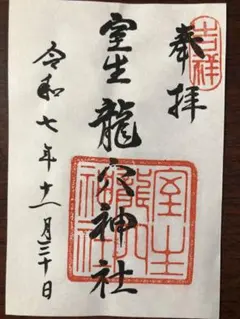 奉拝
吉祥
室生龍穴神社
室生龍穴神社
令和七年十一月三十日